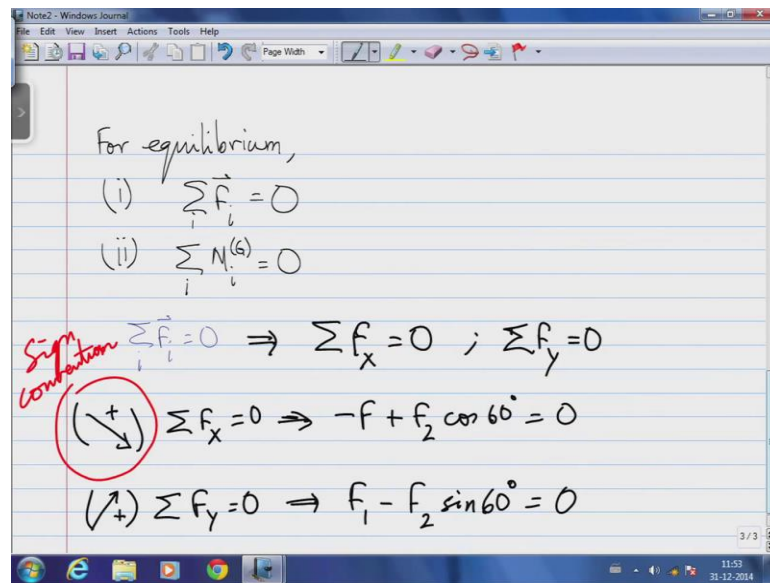 Note2 - Windows Journal
File Edit View Insert Actions Tools Help
Page Width
For equilibrium,
(i) ∑_i F⃗_i = 0
(ii) ∑_i M_i^(G) = 0
Sign convention
∑_i F⃗_i = 0 ⇒ ∑F_x = 0 ; ∑F_y = 0
(↘+) ∑F_x = 0 ⇒ -F + F_2 cos 60° = 0
(↗+) ∑F_y = 0 ⇒ F_1 - F_2 sin 60° = 0
3 / 3
11:53
31-12-2014